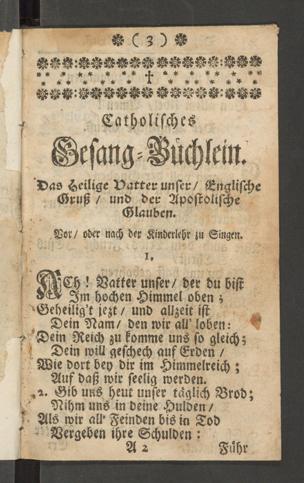 ( 3 )
Catholisches
Gesang-Büchlein.
Das Heilige Vatter unser/ Englische
Gruß/ und der Apostolische
Glauben.
Vor/ oder nach der Kinderlehr zu Singen.
1.
ACh! Vatter unser/ der du bist
Im hochen Himmel oben;
Geheilig't jezt/ und allzeit ist
Dein Nam/ den wir all' loben:
Dein Reich zu komme uns so gleich;
Dein will geschech auf Erden/
Wie dort bey dir im Himmelreich;
Auf daß wir seelig werden.
2. Gib uns heut unser täglich Brod;
Nihm uns in deine Hulden/
Als wir all' Feinden bis in Tod
Vergeben ihre Schulden:
A 2 Führ